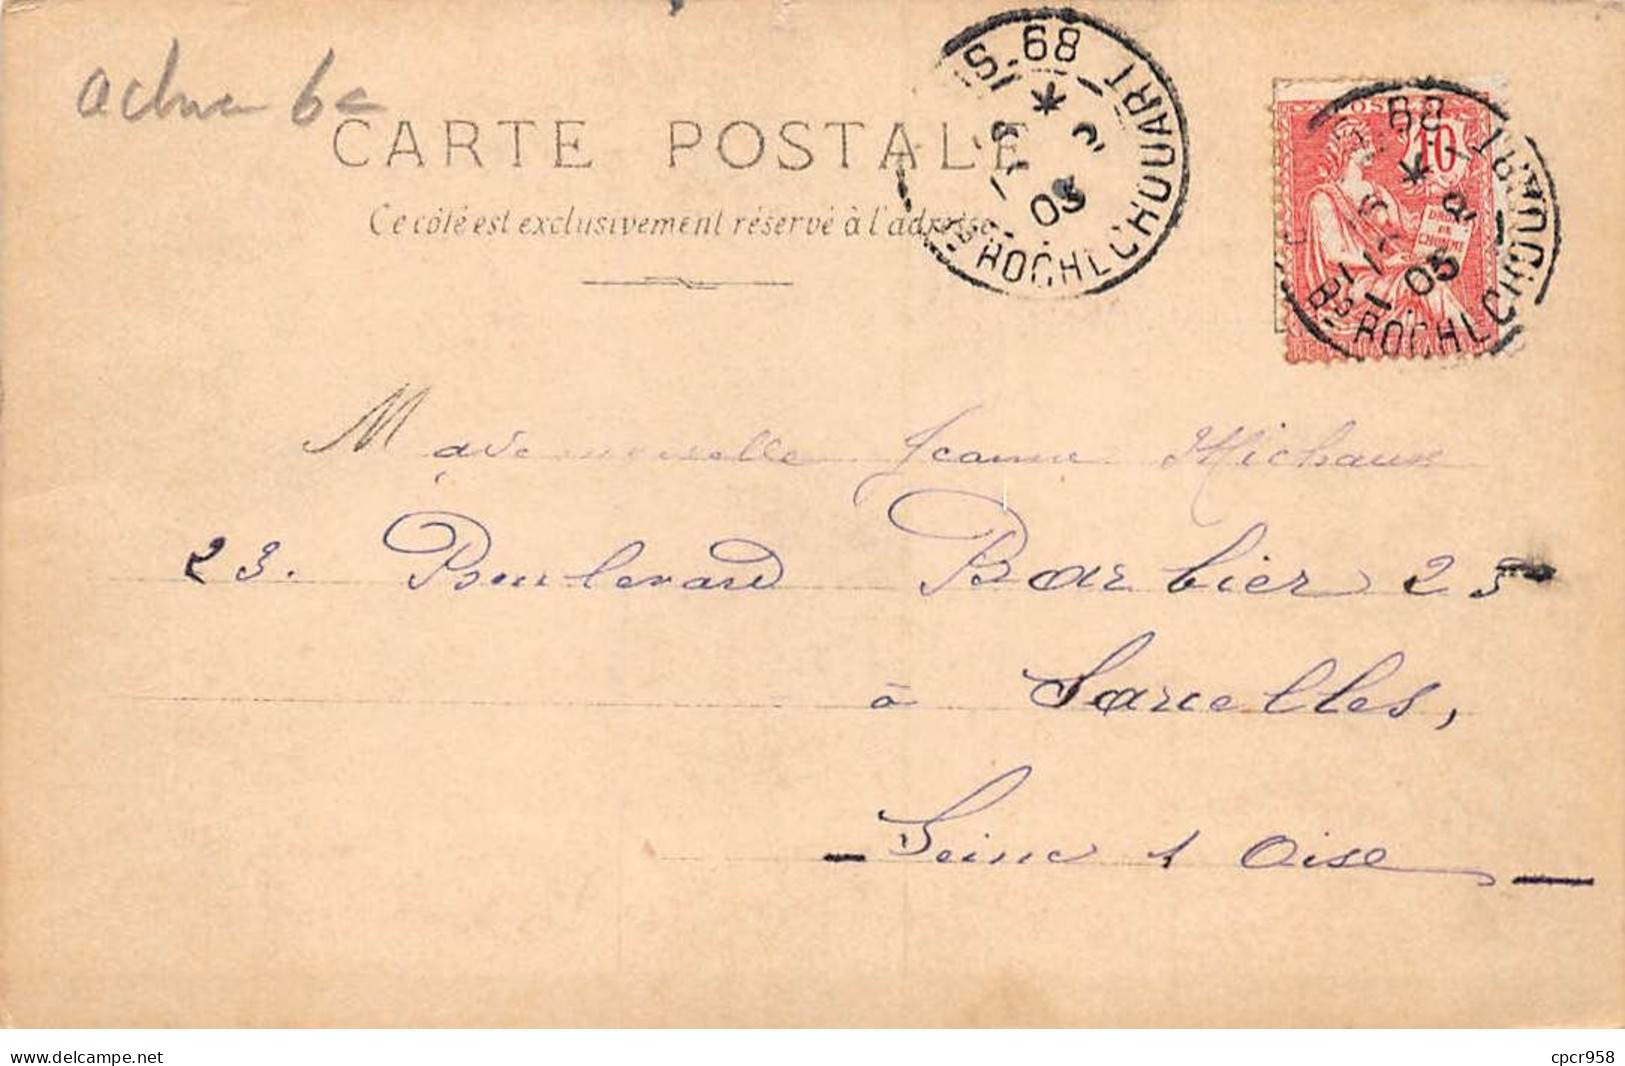 CARTE POSTALE
Ce côté est exclusivement réservé à l'adresse
68
Bd ROCHECHOUART
03
10
68
Bd ROCHECHOUART
03
Mademoiselle Jeanne Michaux
23. Boulevard Barbier 23
à Sarcelles,
Seine & Oise
delcampe.net
cpcr958